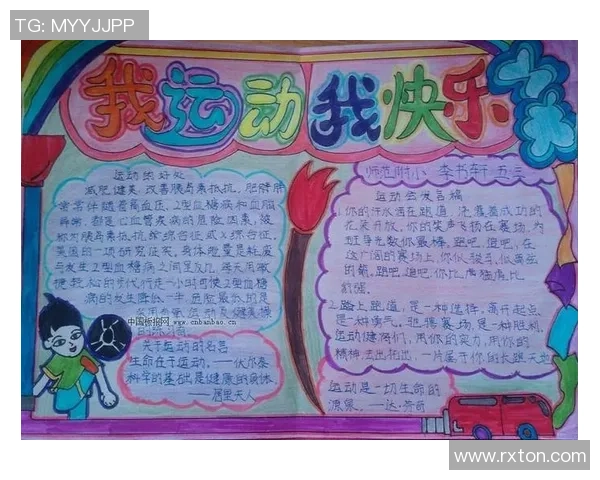 TG: MYYJJPP
我运动我快乐
师范附小 李书轩 五.三
运动的好处
减肥健美、改善胰岛素抵抗。肥胖肺
常常伴随着高血压、2型血糖病和血脂
异常,都是心血管疾病的危险因素,被
称对胰岛素抵抗综合征或X综合征。
英国的一项研究证实,身体能量是耗度
与发生2型血糖病之间呈反比,每天用敏
捷轻松的步代行走一小时可使2型血糖
病的发生降低一半,危险最热的是
家用有氧运动及健美操
中国板报网 www.cnbanbao.cn
关于运动的名言
生命在于运动。——伏尔泰
科学的基础是健康的身体。
——居里夫人
运动会发言稿
1.你的汗水洒在跑道,浇灌着成功的
花朵开放。你的笑声飞扬在赛场,为
班争光数你最棒。跑吧,追吧,在
这广阔的赛场上,你似骏马,似离弦
的箭。跑吧,追吧,你比虎强
2.踏上跑道,是一种选择。离开起点,
是一种勇气。驰骋赛场,是一种胜利。
运动健将们,用你的实力,用你的
精神去出拓出,一片属于你的长跑天地
运动是一切生命的
源泉。——达·芬奇
www.rxton.com